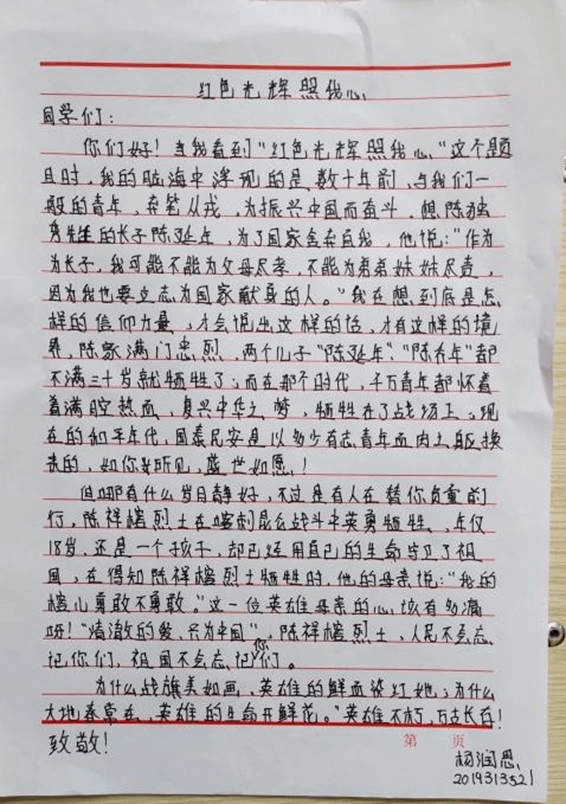 红色光辉照我心
同学们：
你们好！当我看到"红色光辉照我心"这个题
目时，我的脑海中浮现的是数十年前，与我们一
般的青年，弃笔从戎，为振兴中国而奋斗。想陈独
秀先生的长子陈延年，为了国家舍弃自我，他说："作为
为长子，我可能不能为父母尽孝，不能为弟弟妹妹尽责，
因为我也要立志为国家献身的人。"我在想到底是怎
样的信仰力量，才会说出这样的话，才有这样的境
界，陈家满门忠烈，两个儿子"陈延年"、"陈乔年"都
不满三十岁就牺牲了；而在那个时代，千万青年都怀着
着满腔热血，复兴中华之梦，牺牲在了战场上；现
在的和平年代，国泰民安是以多少有志青年血肉之躯换
来的，如你我所见，盛世如愿！
但哪有什么岁月静好，不过是有人在替你负重前
行，陈祥榕烈士在喀喇昆仑战斗中英勇牺牲、年仅
18岁，还是一个孩子，却已经用自己的生命守卫了祖
国，在得知陈祥榕烈士牺牲时，他的母亲说："我的
榕儿勇敢不勇敢。"这一位英雄母亲的心该有多痛
呀！"清澈的爱、只为中国"，陈祥榕烈士、人民不会忘
记你们，祖国不会忘记你们。
为什么战旗美如画，英雄的鲜血染红她；为什么
大地春常在，英雄的生命开鲜花。"英雄不朽，万古长存！
致敬！
第 页
杨润思
2019313521